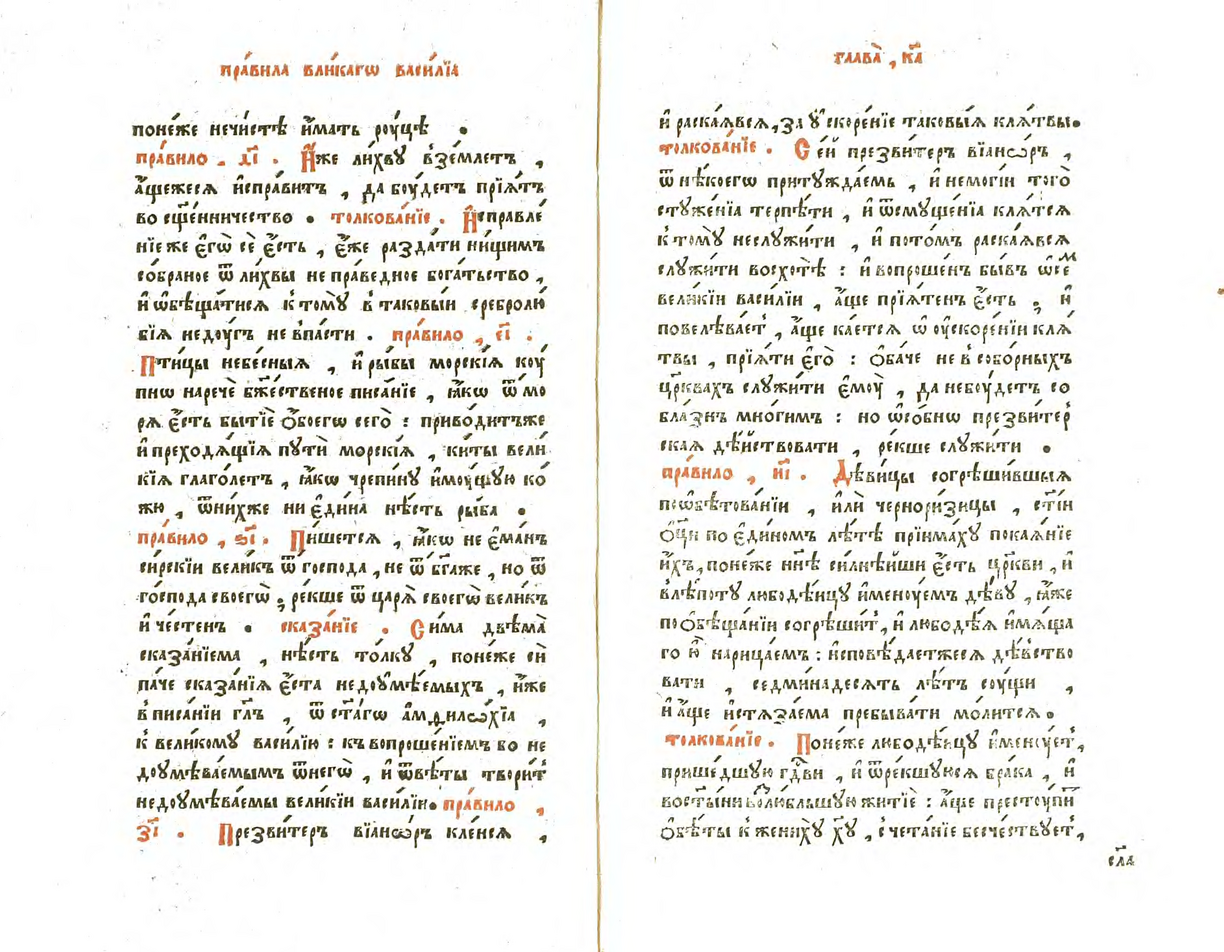 пра́вила вли́кагѡ васи́лїа
поне́же нечи́стѣ и҆́мать ро́уцѣ .
пра́вило . д҃і . И҆́же ли́хву в̾зе́млетъ ,
а҆́щежеся и҆спра́витъ , да бо́удетъ прїѧ́тъ
во сщ҃е́нничество . толкова́нїе . И҆справле́
нїе же є҆гѡ̀ се є҆́сть , є҆́же разда́ти ни́щимъ
со́браное ѿ ли́хвы непра́ведное бога́тьство ,
и҆ ѡ҆бѣща́тися к то́мꙋ в таковы́и сребролю́
бїѧ недо́угъ не впа́сти . пра́вило , є҃і .
Пти́цы небе́сныѧ , и҆ ры́бы морскі́ѧ ко́у
пнѡ наречѐ бж҃е́ственое писа́нїе , ꙗ҆́кѡ ѿ мо́
рѧ є҆́сть бытїѐ ѻ҆бое́гѡ сего̀ : приво́дитъже
и҆ преходѧ́щїѧ пꙋтѝ морскі́ѧ , ки́ты вели́
кїѧ глаго́летъ , ꙗ҆́кѡ чрепи́нꙋ и҆мо́ущꙋю ко́
жꙋ , ѿни́хже ни є҆ди́на нѣ́сть ры́ба .
пра́вило , ѕ҃і . Пи́шетсѧ , ꙗ҆́кѡ не є҆ма́нъ
си́рскїи вели́къ ѿ го́спода , не ѿ бг҃а́же , но ѿ
го́спода своегѡ̀ , ре́кше ѿ царѧ̀ своегѡ̀ вели́къ
и҆ че́стенъ . сказа́нїе . Си́ма двѣма̀
сказа́нїема , нѣ́сть то́лкꙋ , поне́же сїѝ
па́че сказа́нїѧ є҆́ста недоꙋмѣ́емыхъ , и҆́же
в писа́нїи гл҃ъ , ѿ ст҃а́гѡ а҆мфило́хїа ,
к вели́комꙋ васи́лїю : къ вопроше́нїемъ бо не
доꙋмѣ́ваемымъ ѿнегѡ̀ , и҆ ѿвѣ́ты твори́т
недоꙋмѣ́ваемы вели́кїи васи́лїи . пра́вило ,
з҃і . Презви́теръ вїанѡ́ръ клене́сѧ ,
глава̀ , к҃а
и҆ раска́ѧвсѧ , за ᲂу҆скоре́нїе таковы́ѧ клѧ́твы .
толкова́нїе . Се́й презви́теръ вїанѡ́ръ ,
ѿ нѣ́коегѡ притꙋжда́емь , и҆ немоги́и того̀
стꙋже́нїа терпѣ́ти , и҆ ѿсмꙋще́нїа клѧ́тсѧ
к томꙋ̀ неслꙋжи́ти , и҆ пото́мъ раска́ѧвсѧ
слꙋжи́ти восхотѣ̀ : и҆ вопроше́нъ бы́въ ѡ҆ се́м
вели́кїи васи́лїи , а҆́ще прїѧ́тенъ є҆́сть , и҆
повелѣва́ет , а҆́ще ка́етсѧ ѡ҆ ᲂу҆скоре́нїи клѧ́
твы , прїѧ́ти є҆го̀ : ѻ҆ба́че не в собо́рныхъ
цр҃квахъ слꙋжи́ти є҆мо́у , да небо́удетъ со
бла́знъ мно́гимъ : но ѡ҆со́бнѡ презви́тер
скаѧ дѣ́йствовати , ре́кше слꙋжи́ти .
пра́вило , и҃і . Дѣви́цы согрѣши́вшыѧ
по ѡ҆бѣтова́нїи , и҆лѝ черноризи́цы , ст҃і́и
ѻ҆ц҃ы по є҆ди́номъ лѣ́тѣ прїима́хꙋ покаѧ́нїе
и҆́хъ , поне́же нн҃ѣ силнѣ́йши є҆́сть цр҃кви , и҆
влѣ́потꙋ любодѣ́ицꙋ и҆мено́уемъ дѣ́вꙋ , ꙗ҆́же
по ѻ҆бѣща́нїи согрѣши́т , и҆ любодѣ́ѧ и҆мѧ́ща
го ю҆̀ нарица́емъ : и҆сповѣ́даетжесѧ дѣ́вство
вати , седмина́десѧть лѣ́тъ со́ущи ,
и҆ а҆́ще и҆стѧза́ема пребыва́ти мо́литсѧ .
толкова́нїе . Поне́же любодѣ́ицꙋ и҆менꙋ́ет ,
прише́дшꙋю гд҃ви , и҆ ѿре́кшꙋюсѧ бра́ка , и҆
во ст҃ы́ни возлюби́вшꙋю житїѐ : а҆́ще престо́упи
ѻ҆бѣ́ты к женихꙋ̀ хꙋ҃ , сочета́нїе безче́ствꙋет ,
сл҃а